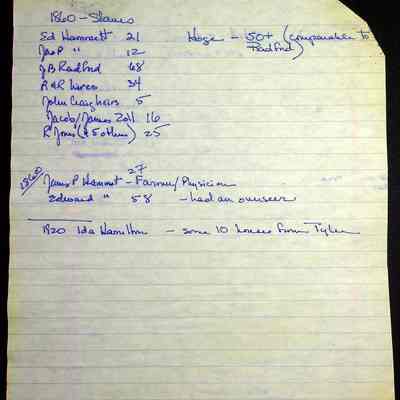 1860 - Slaves
Ed Hammett 21 Hoge - 50+ (comparable to
Radford)
Jas P " 12
J B Radford 48
R & R Wires 34
John Craig heirs 5
Jacob/James Zoll 16
R Jones (& 5 others) 25
1860 James P Hammet - 27 - Farmer/Physician
Edward " 58 - had an overseer
1920 Ida Hamilton - some 10 houses from Tyler